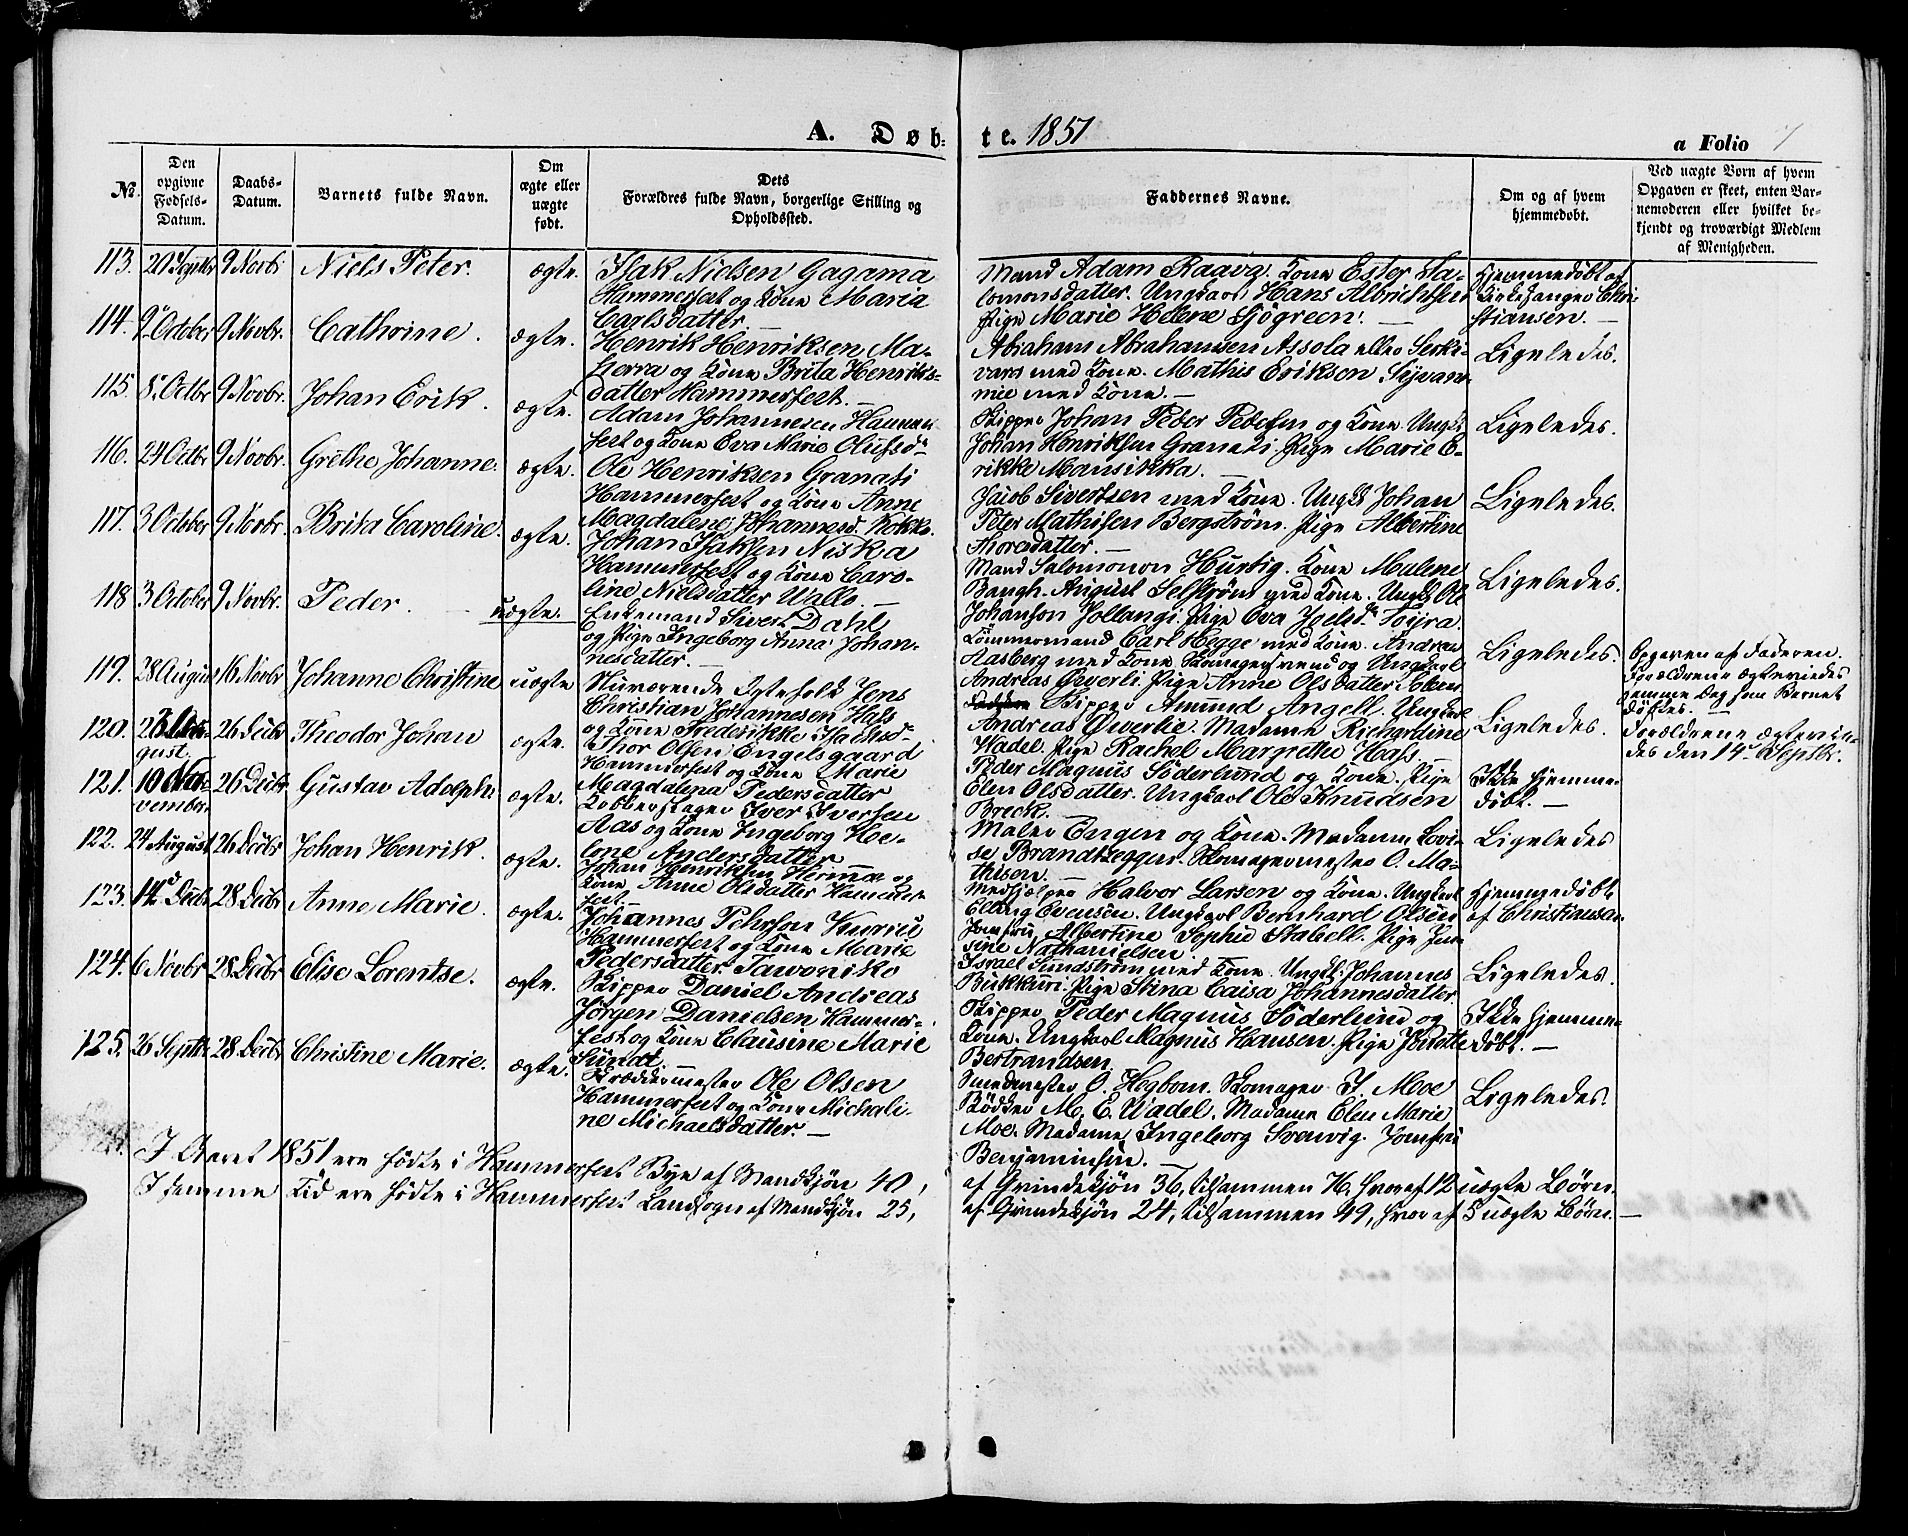 A. Døb-
te. 1851
a Folio 7
No.
Den opgivne Fødsels-Datum.
Daabs-Datum.
Barnets fulde Navn.
Om ægte eller uægte født.
Dets Forældres fulde Navn, borgerlige Stilling og Opholdssted.
Faddernes Navne.
Om og af hvem hjemmedøbt.
Ved uægte Børn af hvem Opgaven er skeet, enten Barnemoderen eller hvilket bekjendt og troværdigt Medlem af Menigheden.
113. 20 Septbr 9 Novbr. Niels Peter. ægte.
Isak Nielsen Gagama
Hammerfest og Kone Maria
Carlsdatter.
Mand Adam Raava. Kone Ester Sa-
lomonsdatter. Ungkarl Hans Albrichtsen
Pige Marie Helene Sjøgreen. —
Hjemmedøbt af
Kirkesanger Chri-
stiansen. —
114. 9 October 9 Novbr. Cathrine. ægte.
Henrik Henriksen Ma-
herra og Kone Brita Henriks-
datter Hammerfest. —
Abraham Abrahamsen Assola eller Serki-
vara med Kone. Mathis Erikson
med Kone. —
Ligeledes.
115. 8 Octbr 9 Novbr. Johan Erik. ægte.
Adam Johannesen Hammer-
fest og Kone Eva Marie Olufsdr
Skipper Johan Peter Pedersen og Kone. Ungk.
Johan Henriksen Granati. Pige Marie E-
rikke Mansikka. —
Ligeledes.
116. 24 Octbr 9 Novbr. Grethe Johanne. ægte.
Ole Henriksen Granati
Hammerfest og Kone Anne
Magdalene Johannesd. Kokko.
Jacob Sivertsen med Kone. Ungk. Johan
Peter Mathisen Bergstrøm. Pige Albertine
Thoresdatter. —
Ligeledes.
117. 3 October 9 Novbr. Brita Caroline. ægte.
Johan Isaksen Niska
Hammerfest og Kone Caro-
line Nielsdatter Wallo. —
Mand Salomonon Hurtig. Kone Malene
Baugh. August Selstrøm med Kone. Ungk. Ol.
Johanson Jollangi. Pige Eva Joelsdr
Ligeledes.
118 3 October 9 Novbr. Peder. — uægte.
Enkemand Sivert Dahl
og Pige Ingeborg Anna Johan-
nesdatter. —
Tømmermand Carl Hegge med Kone. Andreas
Aasberg med Kone. Skomagersvend og Ungkarl
Andreas Øverli. Pige Anne Olsdatter
Ligeledes.
Opgaven af Faderen.
Forældrene ægteviedes
samme Dag som Barnet
døbtes. —
119. 28 August 16 Novbr. Johanne Christine uægte
Nuværende Ægtefolk Jens
Christian Johannesen Hass
og Kone Frederikke
Skipper Amund Angell. Ungkarl
Andreas Øverlie. Madame Richardine
Wadel. Pige Rachel Margrethe Hass.
Ligeledes.
Forældrene ægtevie-
des den 14. Septbr.
120. August. 26 Decbr Theodor Johan ægte.
Thor Olsen Engelsgaard
Hammerfest og Kone Marie
Magdalena Pedersdatter
Peder Magnus Söderlund og Kone. Pige
Elen Olsdatter. Ungkarl Ole Knudsen
Breck. —
Ikke hjemme-
døbt. —
121. 10 No-
vember. 26 Decbr Gustav Adolph. ægte.
Kobberslager Iver Iversen
Aas og Kone Ingeborg He-
lene Andersdatter
Maler Engen og Kone. Madame Lovi-
se Brandtzeggur. Skomagermester O. Ma-
thisen.
Ligeledes
122. 24 August 26 Decbr Johan Henrik. ægte.
Johan Henriksen og
Kone Anne Olsdatter Hammer-
fest. —
Medhjælper Halvor Larsen og Kone. Ungkarl
Elling Evensen. Ungkarl Bernhard Olsen
Jomfru Albertine Sophie Stabell. Pige Jen-
sine Nathanielsen.
Hjemmedøbt
af Christiansen
123. 14d Decbr 28 Decbr Anne Marie. ægte.
Johannes Pehrson Kurrie
Hammerfest og Kone Marie
Pedersdatter Tawoniko
Israel Sundstrøm med Kone. Ungk. Johannes
Bukkuri. Pige Stina Caisa Johannesdatter.
Ligeledes.
124. 6 Novbr 28 Decbr Elise Lorentse. ægte.
Skipper Daniel Andreas
Jørgen Danielsen Hammer-
fest og Kone Clausine Marie
Sundt.
Skipper Peder Magnus Söderlund og
Kone. Ungkarl Magnus Hansen. Pige
Bertrandsen.
Ikke hjemme-
døbt. —
125. 26 Septbr 28 Decbr Christine Marie. ægte.
Skræddermester Ole Olsen
Hammerfest og Kone Michali-
ne Michaelsdatter. —
Smedmester O. Hegbom. Skomager I. Moe
Bødker M. E. Wadel. Madame Elen Marie
Moe. Madame Ingeborg Jomfru
Benjaminsen. —
Ligeledes.
I Aaret 1851 ere fødte i Hammerfest Bye af Mandkjøn 40, af Qvindekjøn 36, tilsammen 76, hvoraf 12 uægte Børn.
I samme Tid ere fødte i Hammerfest Landsogn af Mandkjøn 25, af Qvindekjøn 24, tilsammen 49, hvoraf 5 uægte Børn. —